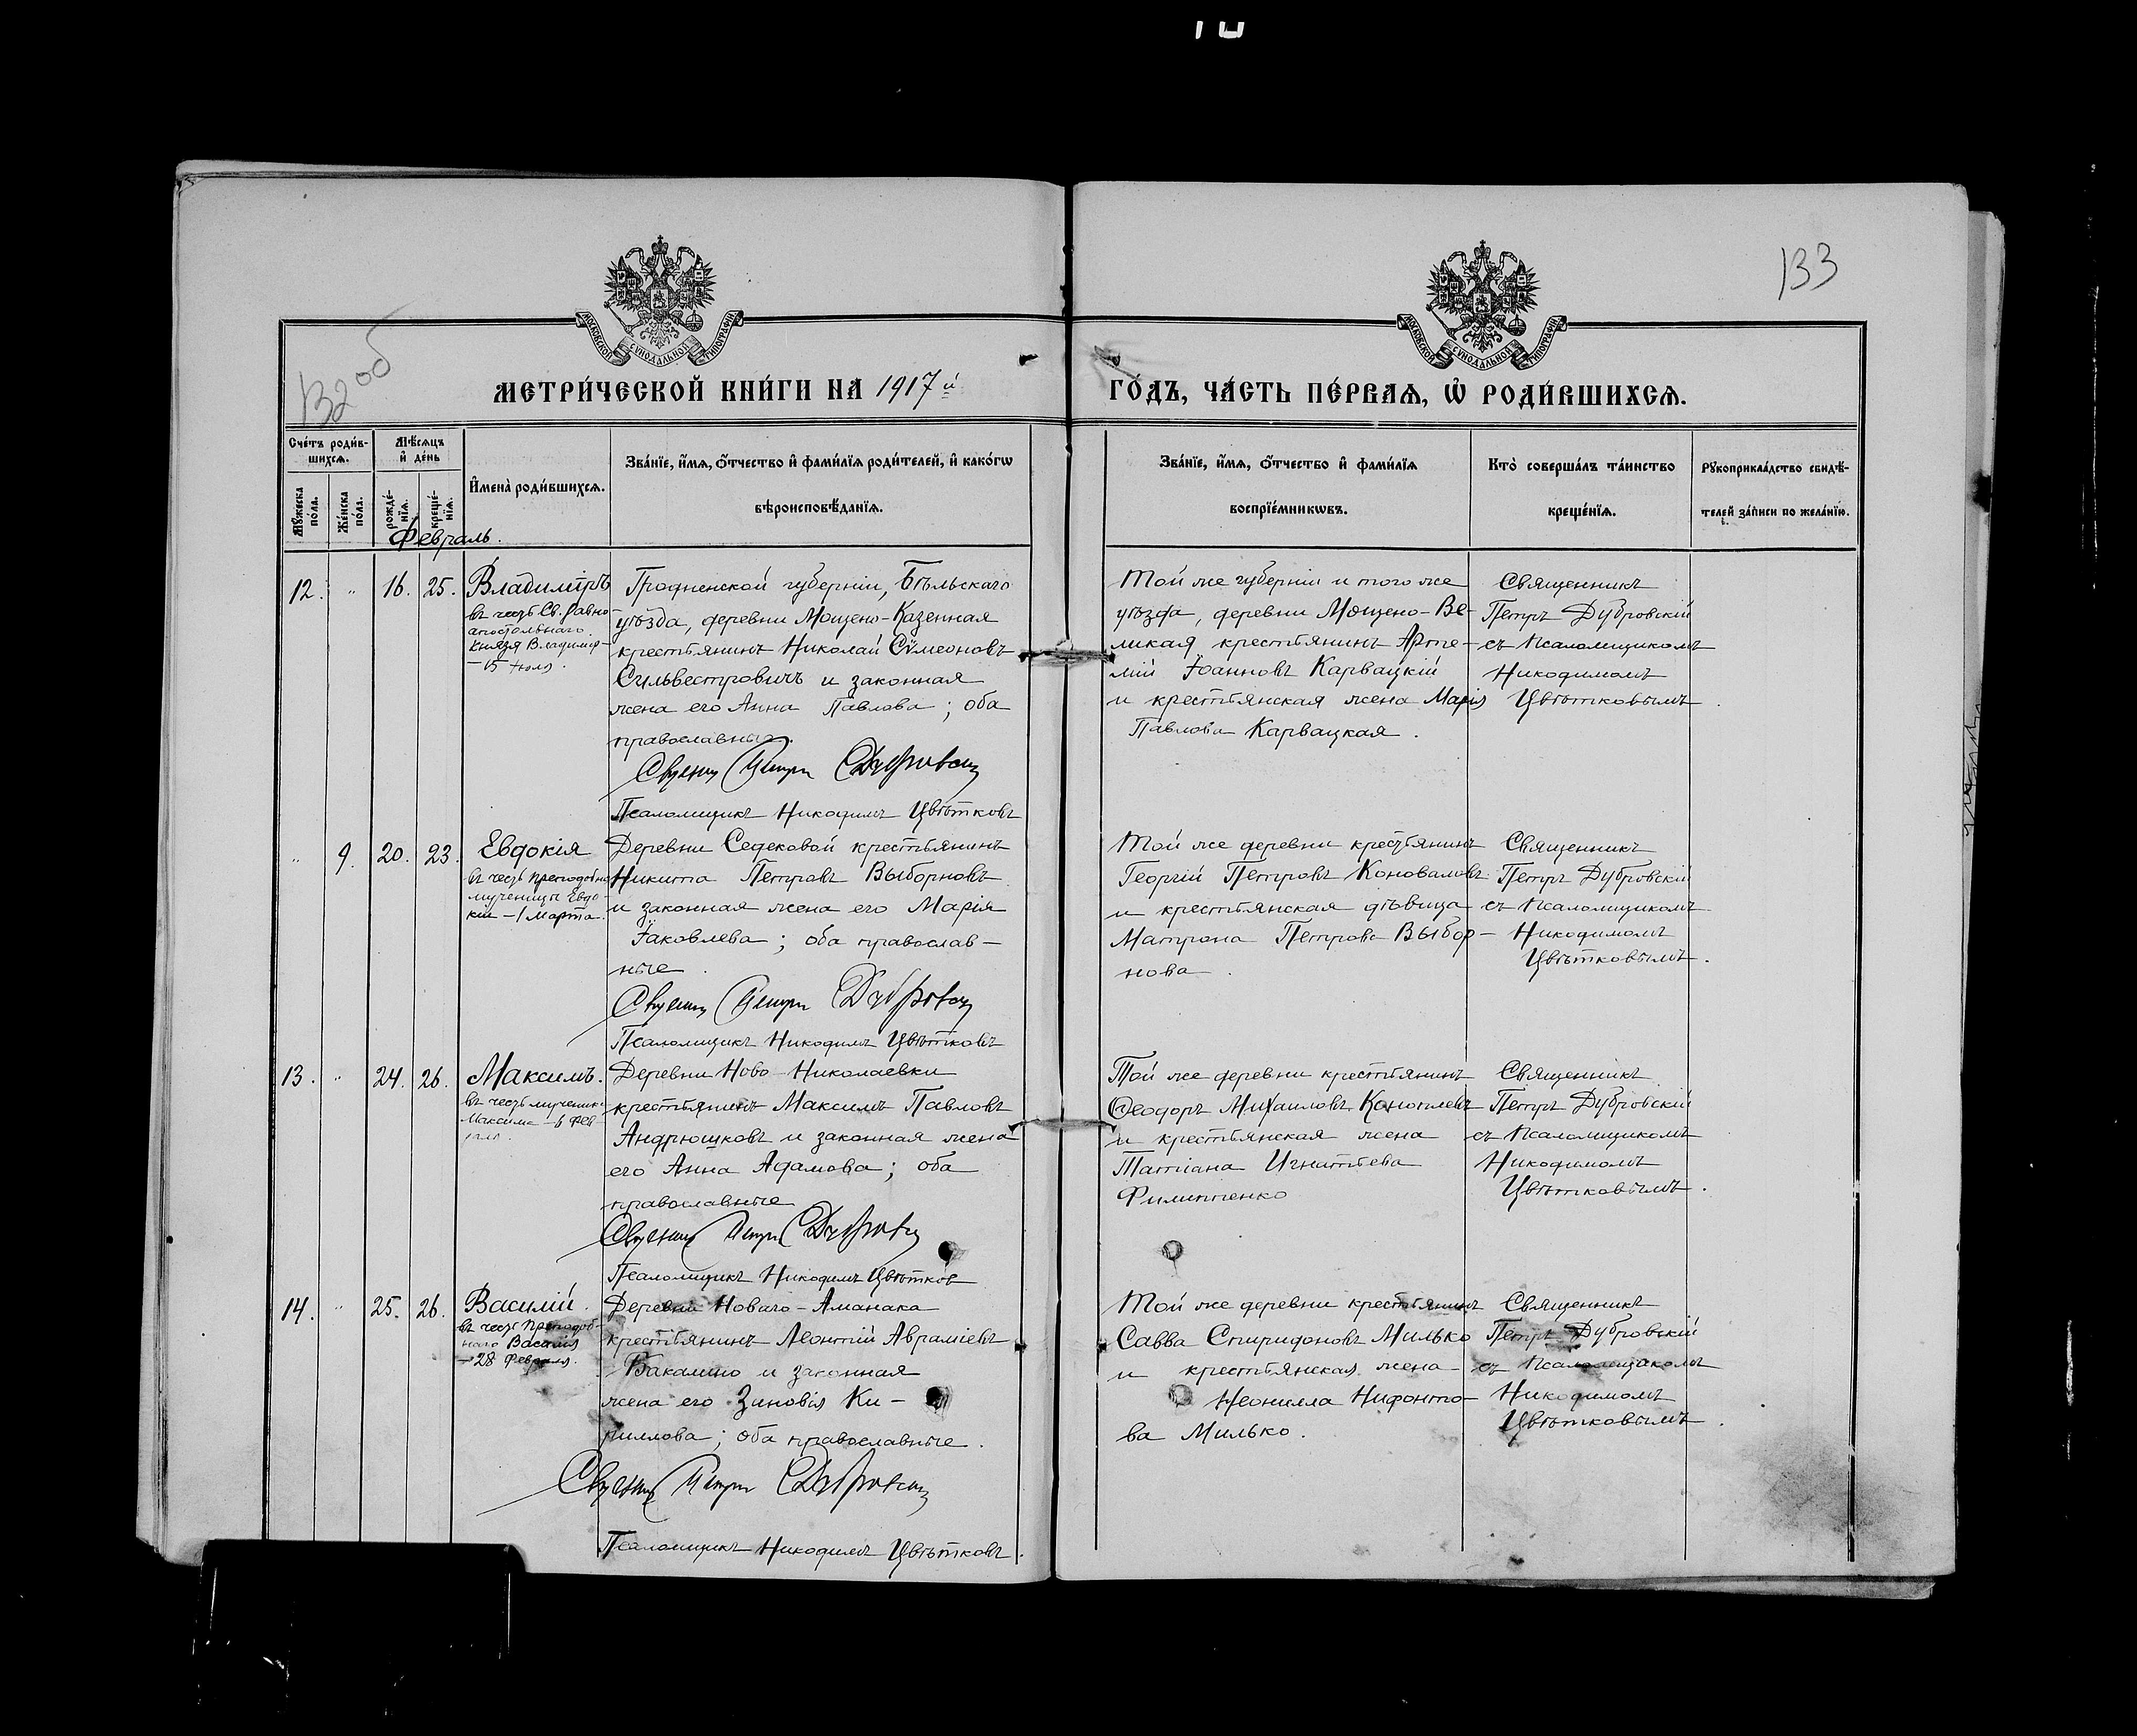 132 об
133
МОСКОВСКОЙ СѴНОДАЛЬНОЙ ТИПОГРАФІИ
МОСКОВСКОЙ СѴНОДАЛЬНОЙ ТИПОГРАФІИ
МЕТРИ́ЧЕСКОЙ КНИ́ГИ НА 1917й
ГО́ДЪ, ЧА́СТЬ ПЕ́РВАѦ, Ѽ РОДИ́ВШИХСѦ.
Сче́тъ роди́в-
шихсѧ.
Мѣ́сѧцъ
и҆ де́нь
Мꙋ́жеска
по́ла.
Же́нска
по́ла.
рожде́-
нїѧ.
креще́-
нїѧ.
И҆мена̀ роди́вшихсѧ.
Зва́нїе, и҆́мѧ, ѻ҆́тчество и҆ фами́лїѧ роди́телей, и҆ како́гѡ
вѣроисповѣ́данїѧ.
Зва́нїе, и҆́мѧ, ѻ҆́тчество и҆ фами́лїѧ
воспрїе́мникѡвъ.
Кто̀ соверша́лъ та́инство
креще́нїѧ.
Рꙋкоприкла́дство свидѣ́-
телей за́писи по жела́нїю.
Февраль.
12. " 16. 25.
Владиміръ
въ честь Св. равно-
апостольнаго
Князя Владимір-
– 15 Іюля.
Гродненской губерніи, Бѣльскаго
уѣзда, деревни Мощено-Казенная
крестьянинъ Николай Сѵмеоновъ
Сильвестровичъ и законная
жена его Анна Павлова; оба
православные.
Священ Петръ Дубровскій
Псаломщикъ Никодимъ Цвѣтковъ
Той же губерніи и того же
уѣзда, деревни Мощено-Ве-
ликая, крестьянинъ Арте-
мій Іоанновъ Карвацкій
и крестьянская жена Марія
Павлова Карвацкая.
Священникъ
Петръ Дубровскій
съ Псаломщикомъ
Никодимомъ
Цвѣтковымъ.
" 9. 20. 23.
Евдокія
въ честь преподобно
мученицы Евдо-
кіи – 1 Марта.
Деревни Седековой крестьянинъ
Никита Петровъ Выборновъ
и законная жена его Марія
Іаковлева; оба православ-
ные.
Священ Петръ Дубровскій
Псаломщикъ Никодимъ Цвѣтковъ
Той же деревни крестьянинъ
Георгій Петровъ Коноваловъ
и крестьянская дѣвица
Матрона Петрова Выбор-
нова.
Священникъ
Петръ Дубровскій
съ Псаломщикомъ
Никодимомъ
Цвѣтковымъ.
13. " 24. 26.
Максимъ.
въ честь мученика
Максима – 6 Фев-
раля.
Деревни Ново-Николаевки
крестьянинъ Максимъ Павловъ
Андрюшковъ и законная жена
его Анна Адамова; оба
православные
Священ Петръ Дубровскій
Псаломщикъ Никодимъ Цвѣтков
Той же деревни крестьянинъ
Ѳеодоръ Михаиловъ Коноплевъ
и крестьянская жена
Татіана Игнатьева
Филиппенко
Священникъ
Петръ Дубровскій
съ Псаломщикомъ
Никодимомъ
Цвѣтковымъ.
14. " 25. 26.
Василій.
въ честь Преподоб-
наго Василія
– 28 Февраля.
Деревни Новаго-Аманака
крестьянинъ Леонтій Авраміевъ
Вакално и законная
жена его Зиновія Ки-
риллова; оба православные.
Священ Петръ Дубровскій
Псаломщикъ Никодимъ Цвѣтковъ.
Той же деревни крестьянинъ
Савва Спиридоновъ Милько
и крестьянская жена
Неонилла Нифонто-
ва Милько.
Священникъ
Петръ Дубровскій
съ Псаломщикомъ
Никодимомъ
Цвѣтковымъ.